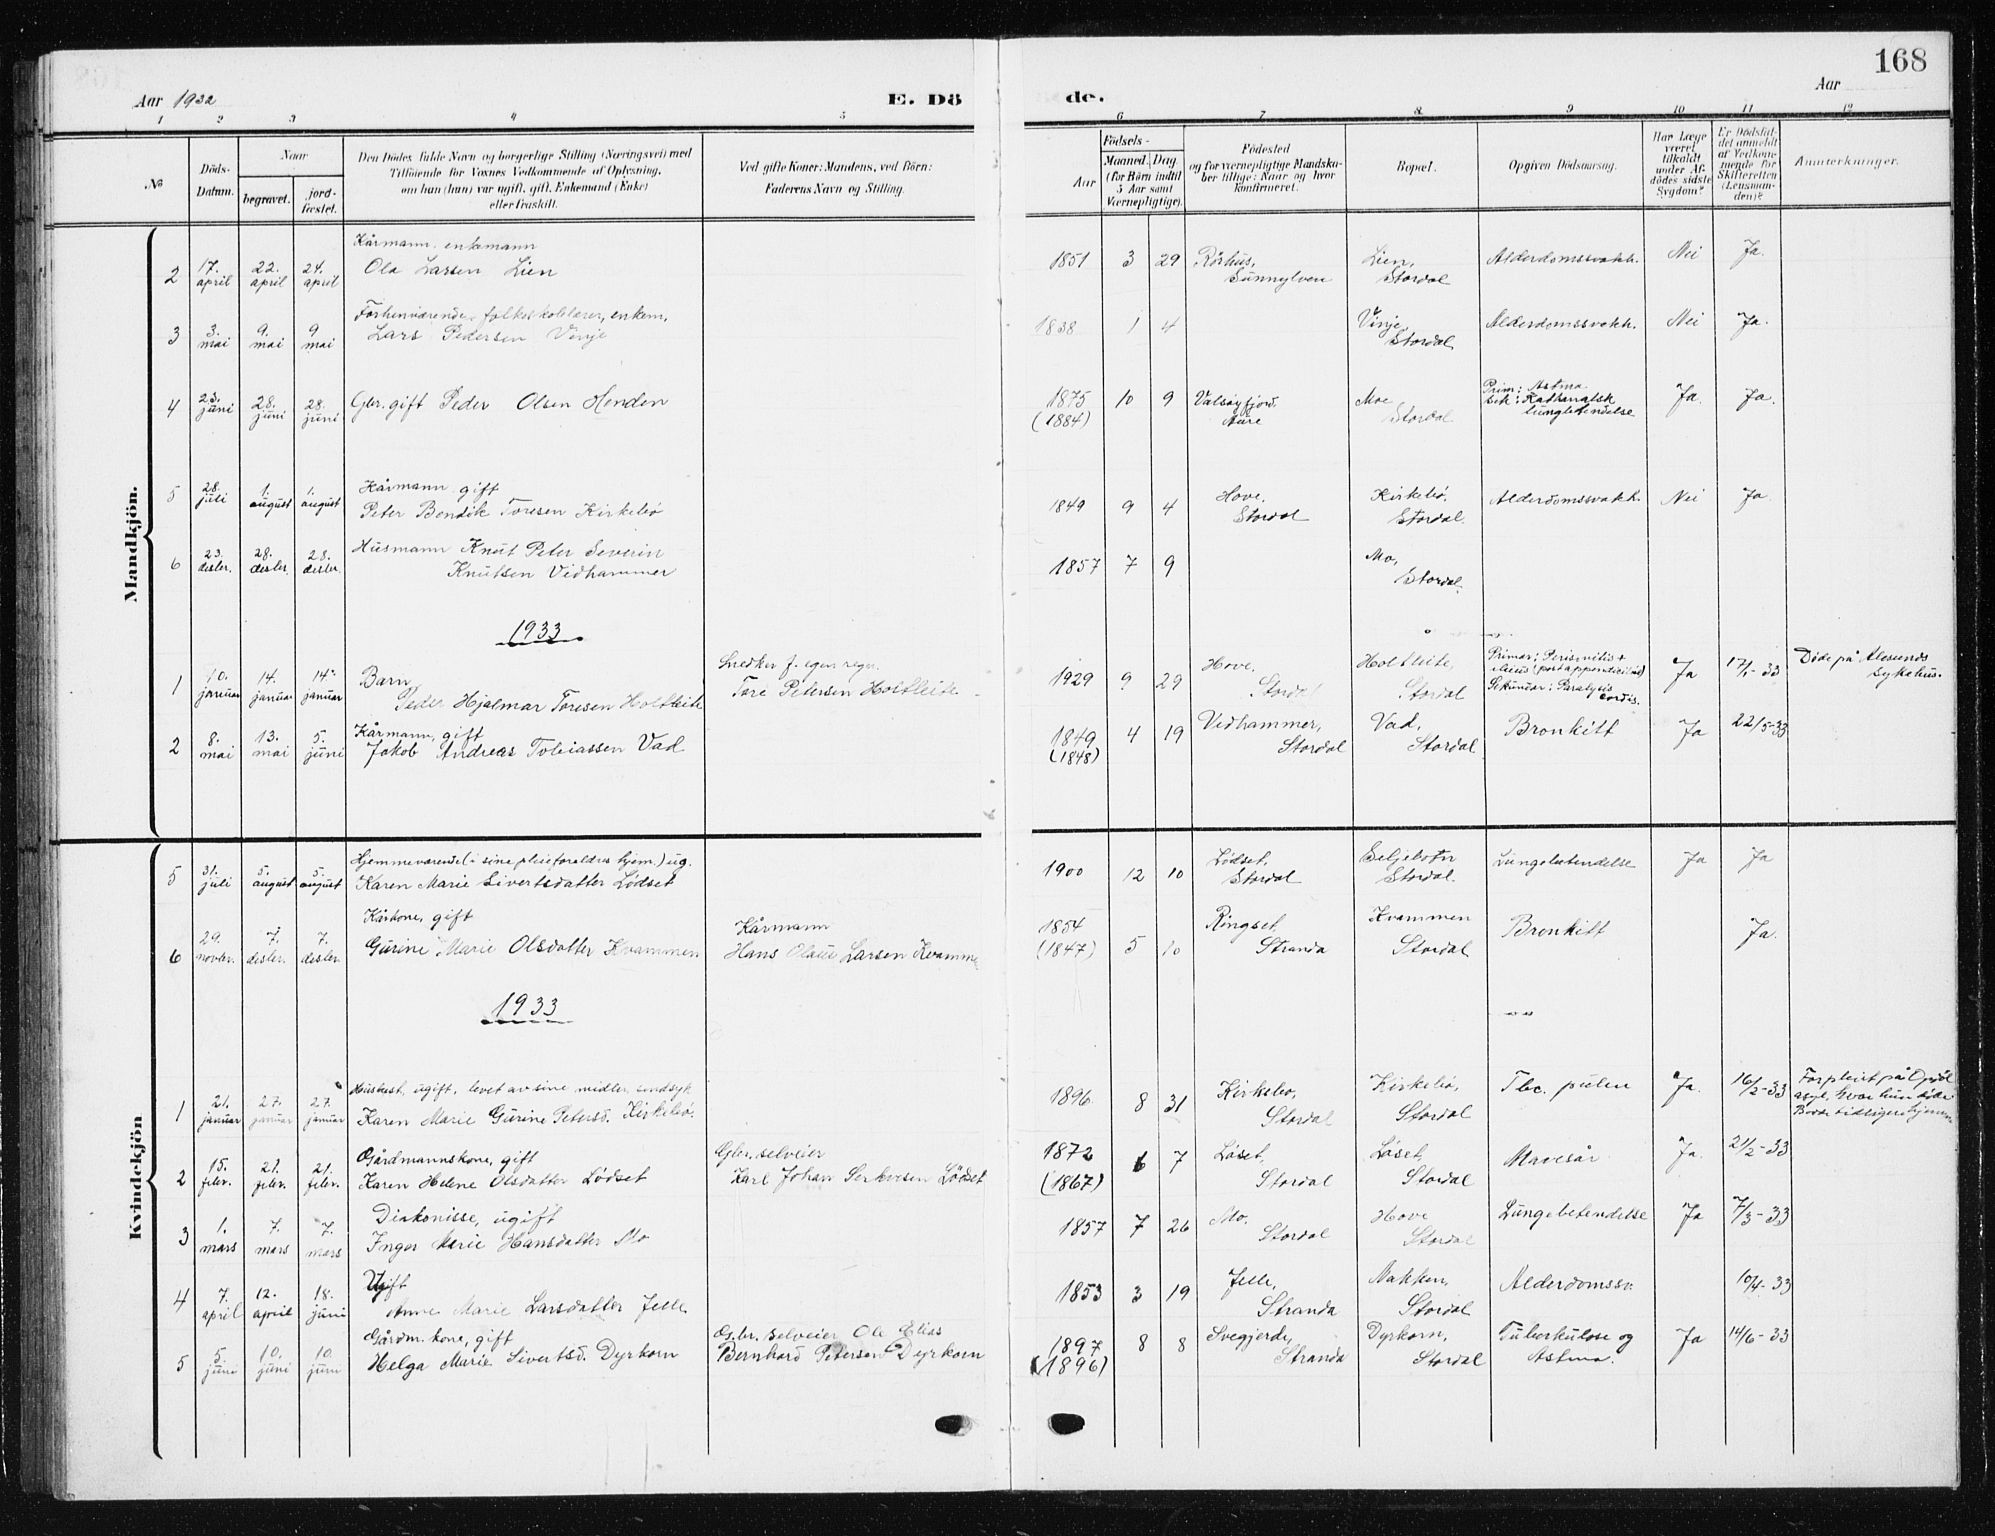 168
Aar 1932
E. Dö
de.
Aar
1 2 3 4 5
6 7 8 9 10 11 12
No
Döds-
Datum.
Naar
begravet.
jord-
fæstet.
Den Dödes fulde Navn og borgerlige Stilling (Næringsvei) med
Tilföiende for Voxnes Vedkommende af Oplysning,
om han (hun) var ugift, gift, Enkemand (Enke)
eller fraskilt.
Ved gifte Koner: Mandens, ved Börn:
Faderens Navn og Stilling.
Födsels-
Aar
Maaned. Dag.
(for Börn indtil
5 Aar samt
Værnepligtige).
Födested
og for værnepligtige Mandska-
ber tillige: Naar og hvor
konfirmeret.
Bopæl.
Opgiven Dödsaarsag.
Har Læge
været
tilkaldt
under Af-
dödes sidste
Sygdom?
Er Dödsfal-
det anmeldt
af Vedkom-
mende for
Skifteretten
(Lensman-
den)?
Anmærkninger.
Mandkjön.
Kårmann, enkemann
2 17. april 22. april 24. april Ola Larsen Lien 1851 3 29 Rörhus, Sunnylven Lien, Stordal Alderdomssvakh. Nei Ja.
Forhenværende folkeskolelærer, enkem.
3 3. mai 9. mai 9 mai Lars Pedersen Vinje 1838 1 4 Vinje, Stordal Alderdomssvakh. Nei Ja.
4 23. juni 28. juni 28. juni Gbr. gift Peder Olsen Henden 1875 (1884) 10 9 Valsøyfjord, Aure Moe Stordal Prim: Astma sek: Katharralsk lungebetendelse Ja. Ja.
Kårmann gift
5 28. juli 1. august 1. august Peter Bendik Toresen Kirkebö 1849 9 4 Hove, Stordal Kirkebö, Stordal. Alderdomssvakh. Nei Ja.
6 23. desbr. 28. desbr. 28. desbr. Husmann Knut Peter Severin
Knutsen Vidhammer 1857 7 9 Mo, Stordal.
1933
1 10. januar 14. januar 14. januar Barn
Peder Hjalmar Toresen Holtleite Snedker f. egen regn. Tore Petersen Holtleite 1929 9 29 Hove, Stordal Holtleite, Stordal Ja 17/1-33 Döde på Ålesunds sykehus.
Sekundær: Paralysis cordis.
Kårmann, gift
2 8. mai 13. mai 5. juni Jakob Andreas Tobiassen Vad 1849 (1848) 4 19 Vidhammer, Stordal Vad, Stordal Bronkitt Ja 22/5-33
Kvindekjön
Hjemmeværende (i sine pleieforeldres hjem.) ug.
5 31. juli 5. august 5. august Karen Marie Sivertsdatter Lödset 1900 12 10 Lödset, Stordal Seljebotn Stordal. Lungebetendelse Ja Ja
Kårkone, gift
6 29. novbr. 7. desbr. 7. desbr. Gurine Marie Olsdatter Kvammen Kårmann Hans Olaus Larsen Kvamme 1854 (1847) 5 10 Ringset, Stranda Kvammen Stordal Bronkitt Ja.
1933
ugift, levet av sine midler, sindsyk
1 21. januar 27. januar 27. januar Karen Marie Gurine Petersd. Kirkebö. 1896 8 31 Kirkebö, Stordal Kirkebö, Stordal Tbc. pulm Ja. 16/2-33 Forpleiet på Opdöl asyl, hvor hun döde
Gårdmannskone, gift
2 15. febr. 21. febr. 21. febr. Karen Helene Olsdatter Lödset Gbr. selveier Karl Johan Serkvesen Lödset 1872 (1867) 6 7 Löset, Stordal Löset, Stordal Mavesår Ja. 21/2-33
Diakonisse, ugift
3 1. mars 7. mars 7. mars Inger Marie Hansdatter Mo 1857 7 26 Mo. Stordal Hove Stordal Lungebetendelse Ja 7/3-33
Ugift
4 7. april 12. april 18. juni Anne Marie Larsdatter Jelle 1853 3 19 Jelle, Stranda Nakken, Stordal Alderdomssv. 10/4-33
Gårdm. kone, gift
5 5 juni 10. juni 10. juni Helga Marie Sivertsd. Dyrkorn Gbr. selveier Ole Elias Bernhard Petersen Dyrkorn 1897 (1896) 8 8 Svegjerde, Stranda Dyrkorn, Stordal Tuberkulose og Astma. Ja 14/6-33